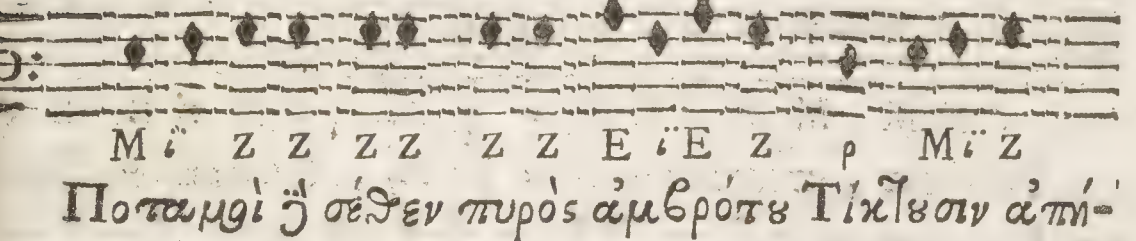 M ϊ Z Z Z Z Z Z E ϊ E Z ρ M ϊ Z
Ποταμοὶ δὲ σέθεν πυρὸς ἀμβρότου Τίκτουσιν ἀπή-